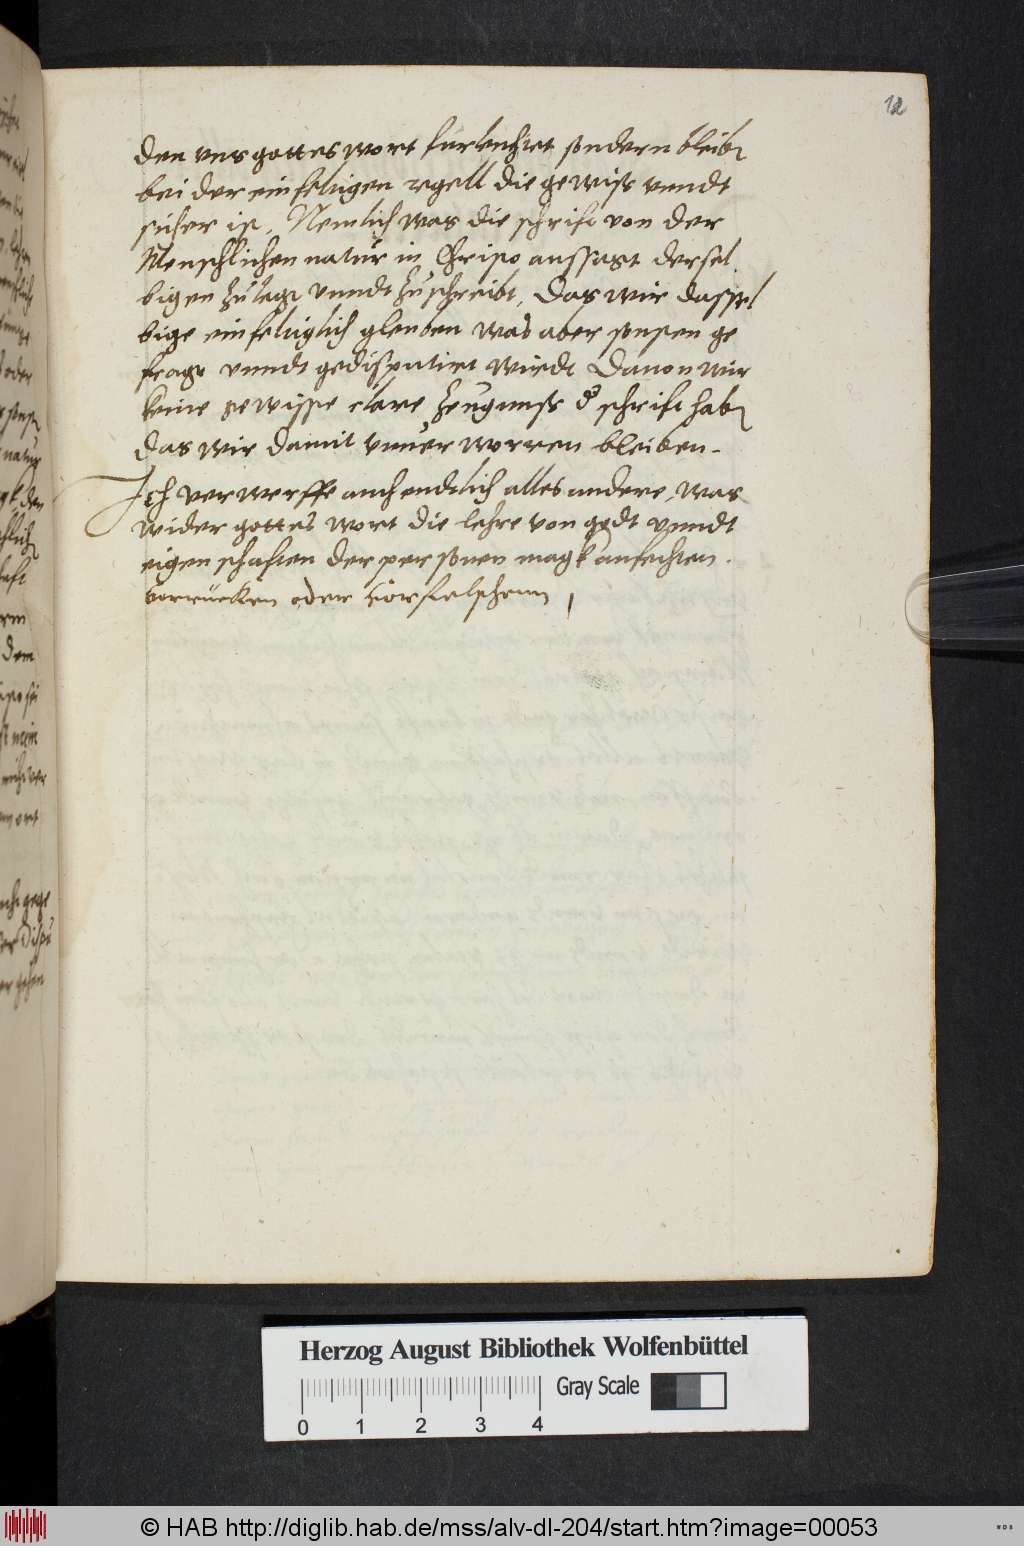 12
den uns gottes wort furleuchtet sondern bleibn
bei der einfeltigen regell die gewiss unndt
sicher ist, Nemlich was die schrift von der
Menschlichen natur in Christo aussagt dersel
bigen zulegt unndt zuschreibt, Das wir dassel
bige einfeltiglich gleuben was aber sonsten ge
fragt unndt gedisputirt wirdt Dauon wir
keine gewisse clare zeugnuss der schrift habn
das wir damit unuerworren bleiben.
Ich verwerffe auch endtlich alles andere, was
wider gottes wort die lehre von gedt unndt
eigenschaften der personen magk anfechten.
verrücken oder
Herzog August Bibliothek Wolfenbüttel
0 1 2 3 4 Gray Scale
© HAB http://diglib.hab.de/mss/alv-dl-204/start.htm?image=00053